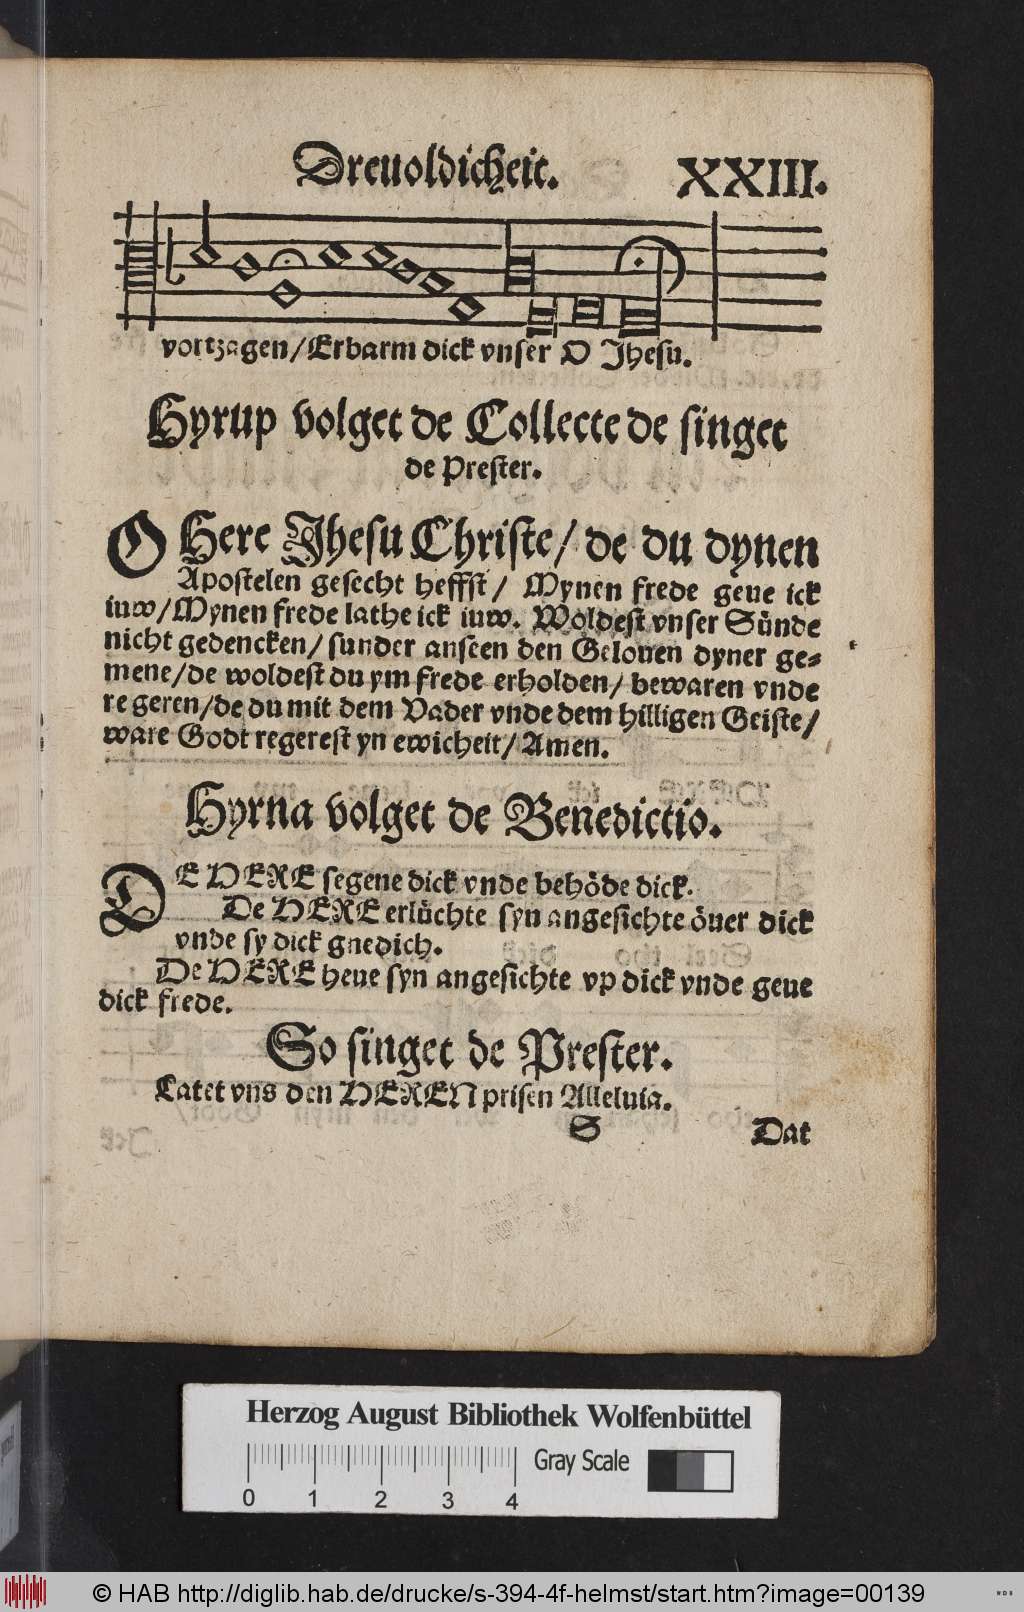 Dreuoldicheit. XXIII.
vortzagen/Erbarm dick vnser O Jhesu.
Hyrup volget de Collecte de singet
de Prester.
O Here Jhesu Christe/ de du dynen
Apostelen gesecht heffst/ Mynen frede geue ick
iuw/Mynen frede lathe ick iuw. Woldest vnser Sünde
nicht gedencken/ sunder anseen den Gelouen dyner ge=
mene/de woldest du ym frede erholden/ bewaren vnde
regeren/de du mit dem Vader vnde dem hilligen Geiste/
ware Godt regerest yn ewicheit/ Amen.
Hyrna volget de Benedictio.
DE HERE segene dick vnde behöde dick.
De HERE erlüchte syn angesichte öuer dick
vnde sy dick gnedich.
De HERE heue syn angesichte vp dick vnde geue
dick frede.
So singet de Prester.
Latet vns den HEREN prisen Alleluia.
S Dat
Herzog August Bibliothek Wolfenbüttel
Gray Scale
0 1 2 3 4
© HAB http://diglib.hab.de/drucke/s-394-4f-helmst/start.htm?image=00139